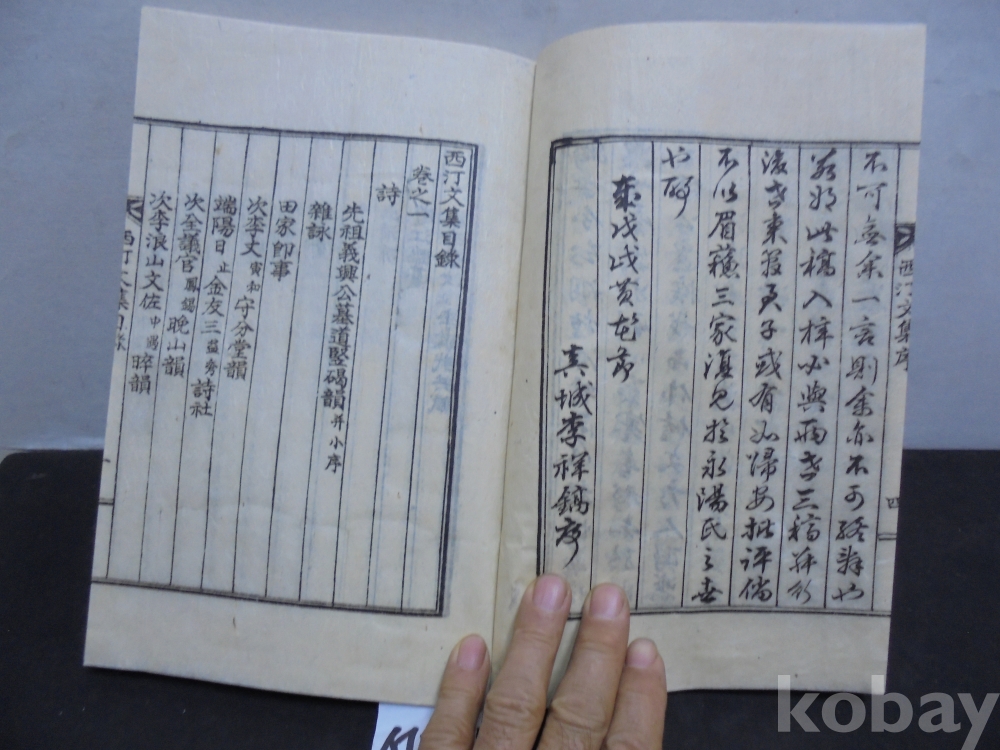 西汀文集序
四
不可無余一言則余亦不可終辭也
此稿入梓必與兩世三稿
後世東 君子或有如歸安批評倘
不以眉蘇三家復見於永陽氏之世
也耶
歲戊戌黃花節
真城李祥鎬序
西汀文集目錄
卷之一
詩
先祖義興公墓道竪碣韻 并小序
雜詠
田家卽事
次李丈 寅和 守分堂韻
端陽日 止金友三 益秀 詩社
次全議官 鳳錫 晩山韻
次李浪山文佐 中 晬韻
西汀文集目錄
kobay